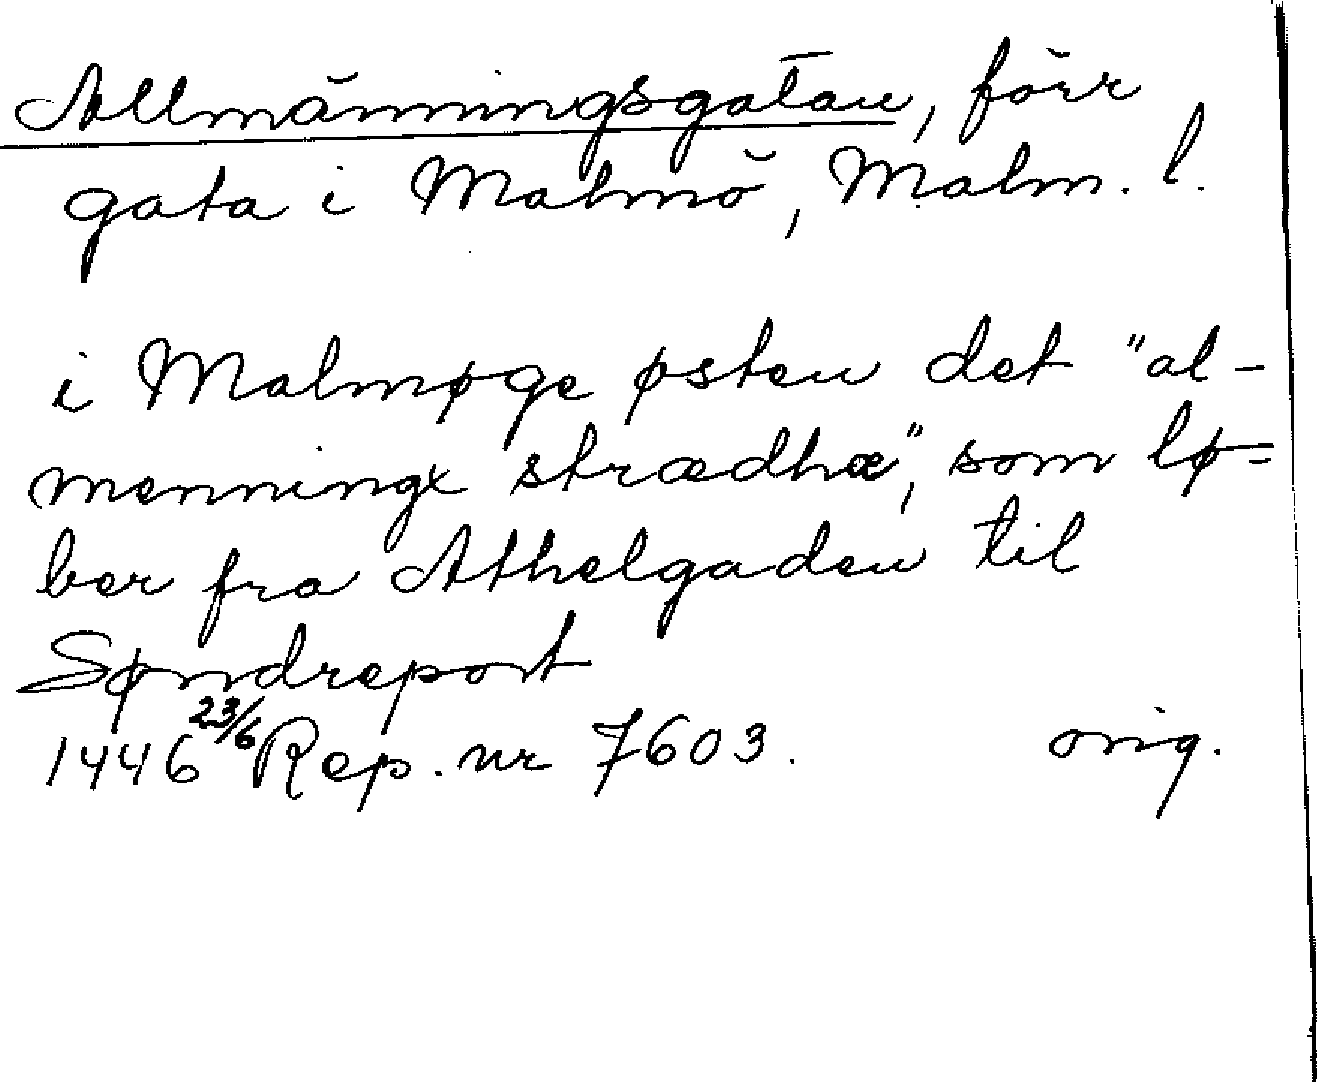 Allmänningsgatan, förr
gata i Malmö, Malm. l.
i Malmøge østen det "al-
menningx strædhæ", som lø-
ber fra Athelgaden til
Søndreport
1446 23/6 Rep. nr 7603. orig.